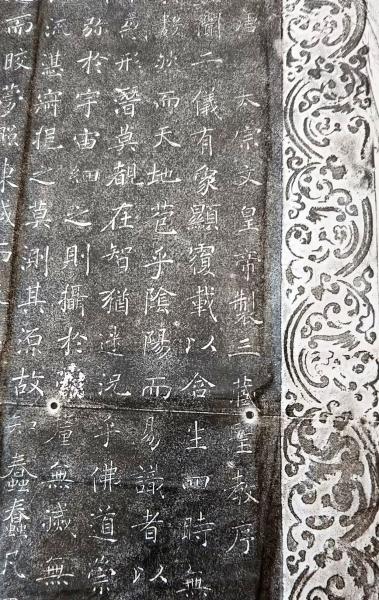 唐太宗文皇帝製三藏聖教序
聞二儀有象顯覆載以含生四時無
數然而天地苞乎陰陽而易識者以
形潛莫覩在智猶迷況乎佛道崇
弥於宇宙細之則攝於釐無滅無
流湛寂挹之莫測其源故知蠢蠢凡
而皎夢照東域而